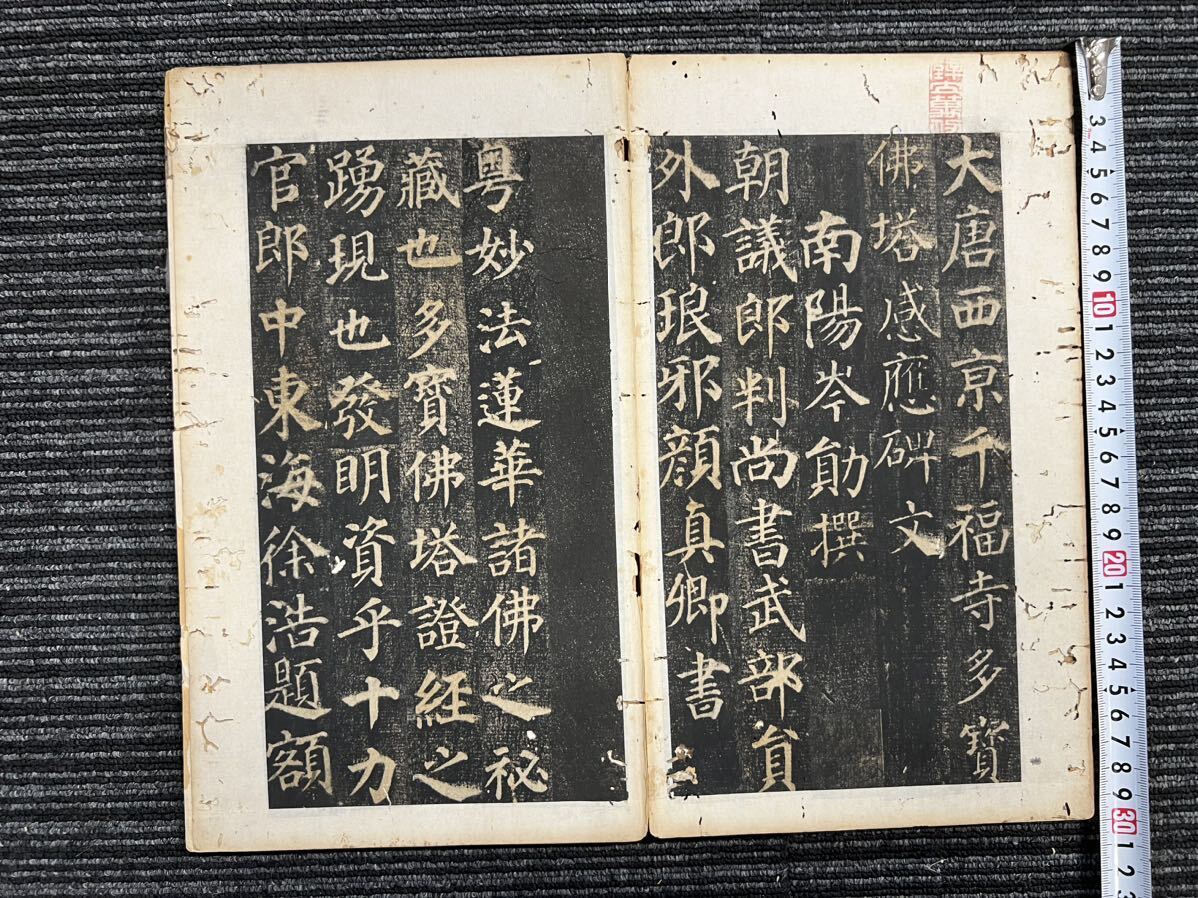 大唐西亰千福寺多寶
佛塔感應碑文
南陽岑勛撰
朝議郎判尚書武部員
外郎琅邪顏真卿書
粤妙法蓮華諸佛之祕
藏也多寶佛塔證經之
踴現也發明資乎十力
官郎中東海徐浩題額
3 4 5 6 7 8 9 10 1 2 3 4 5 6 7 8 9 20 1 2 3 4 5 6 7 8 9 30 1 2 3